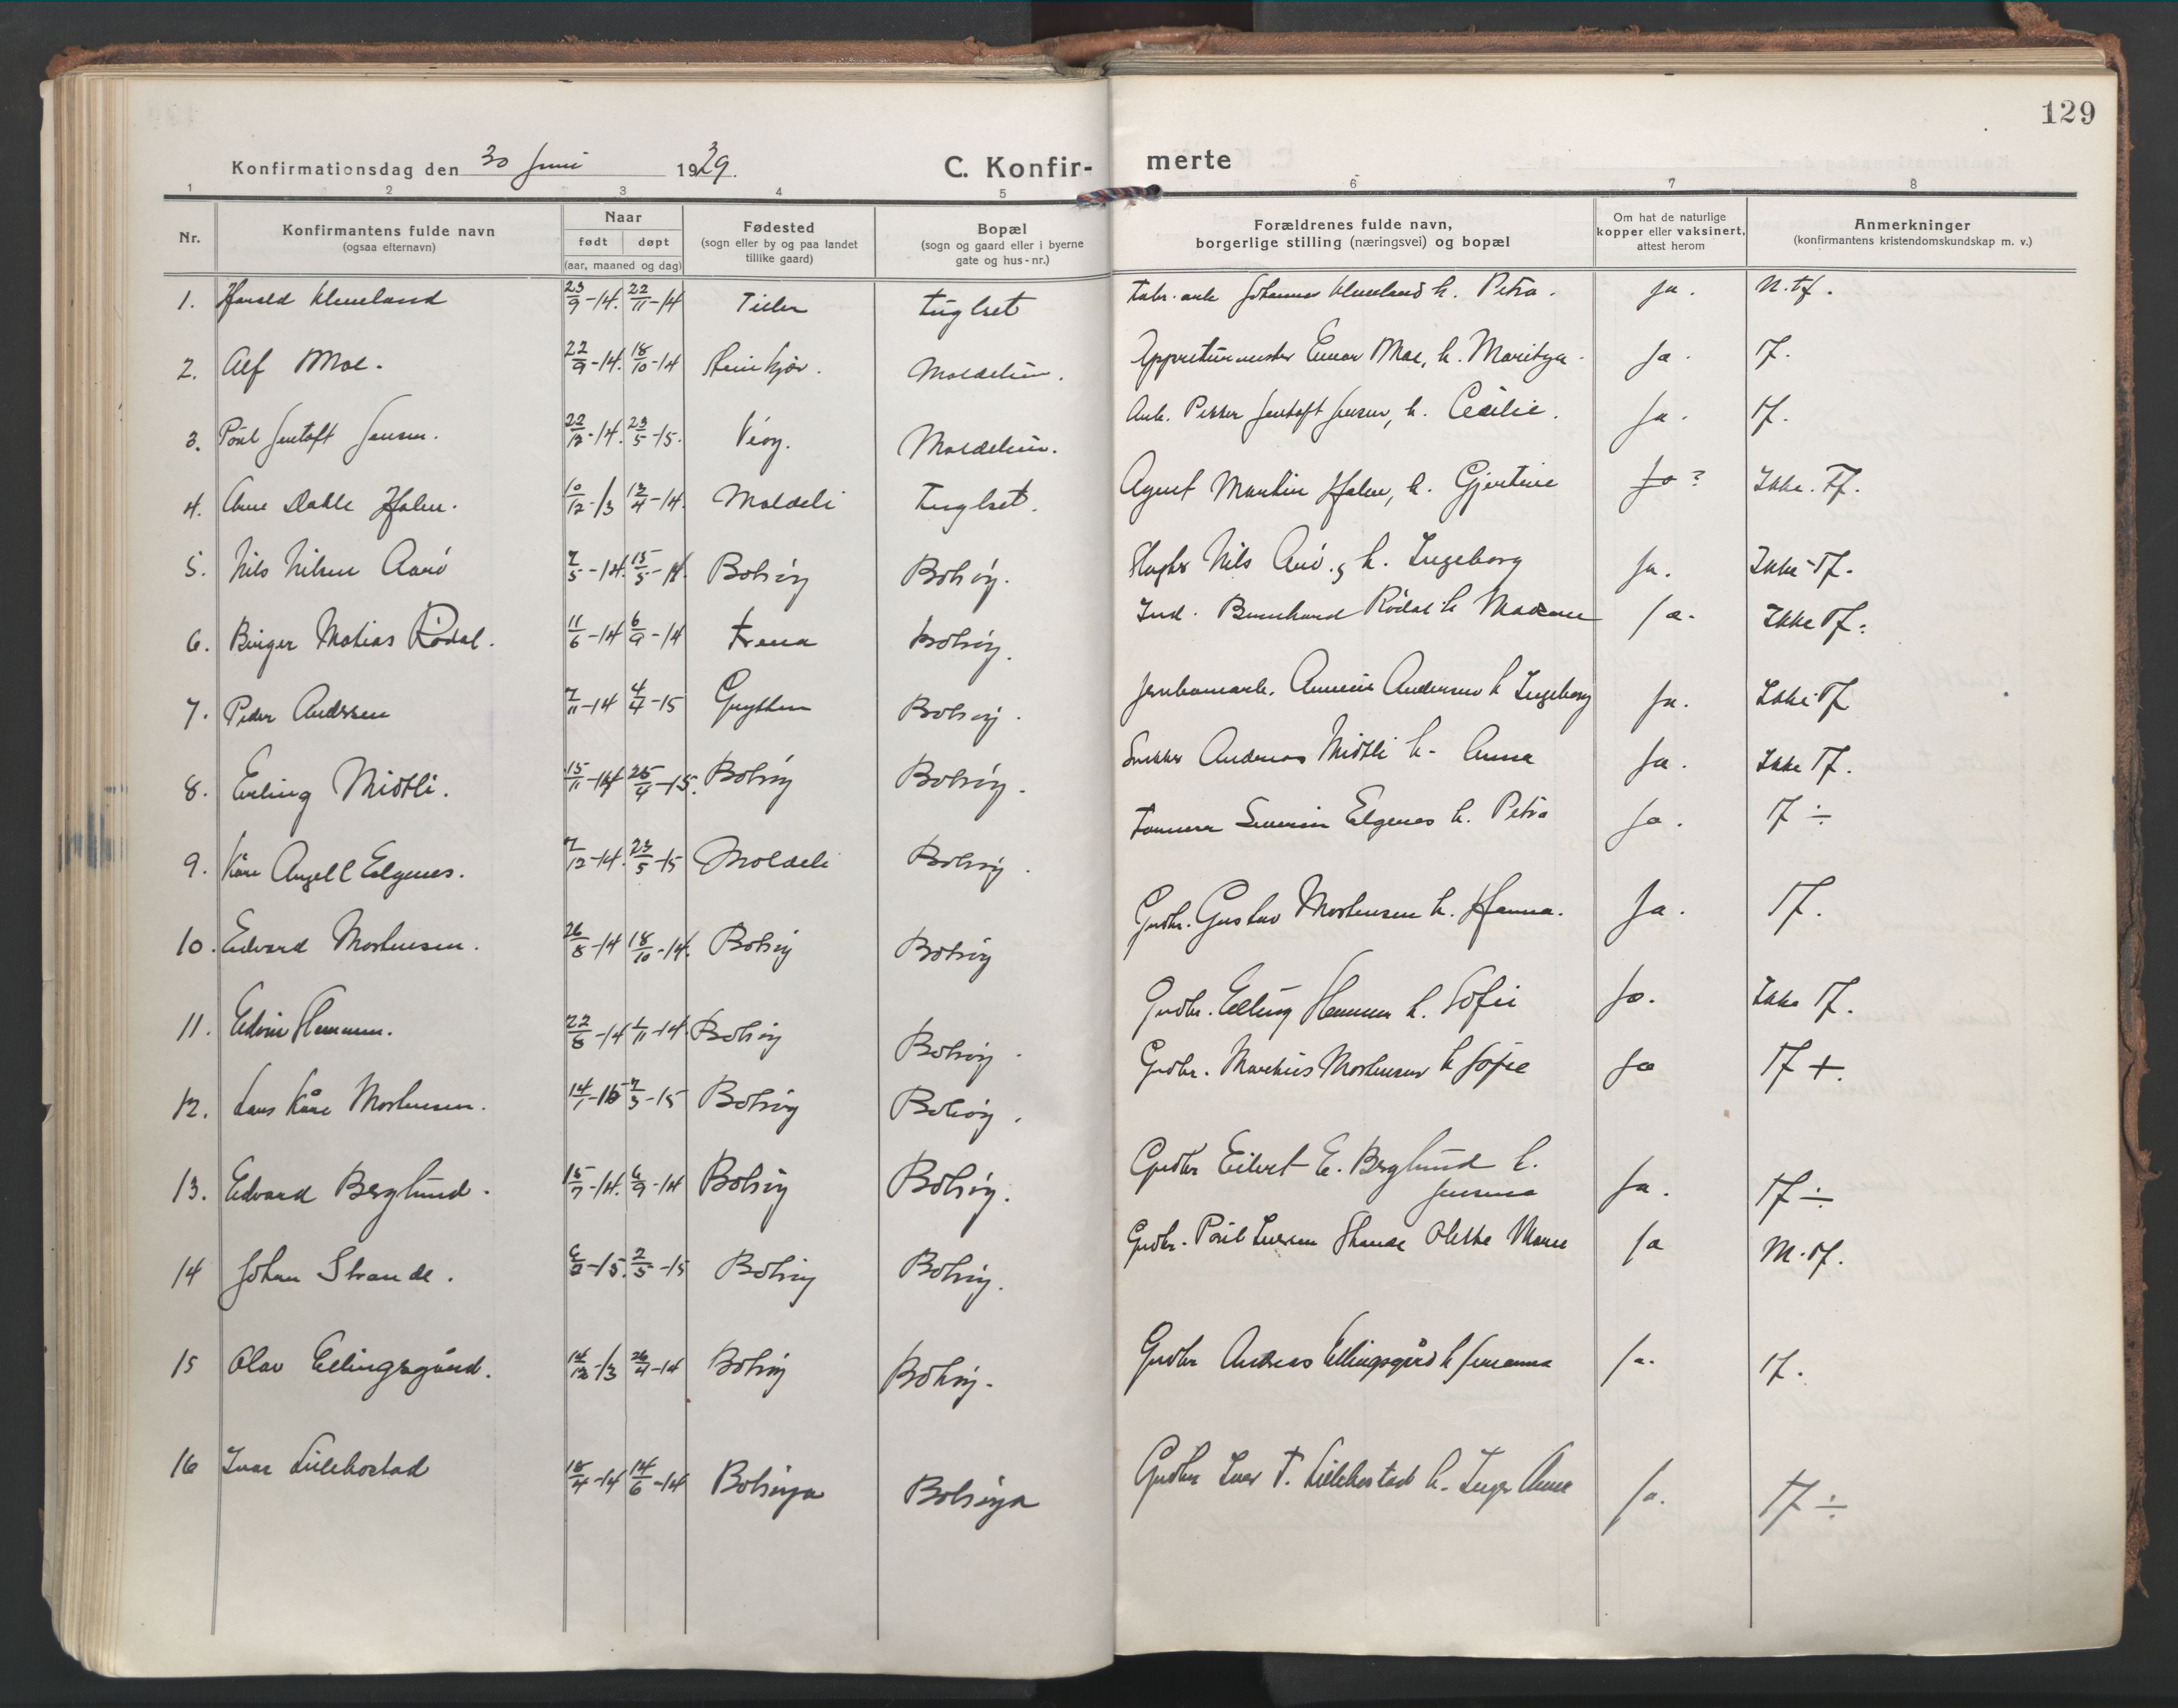 129
Konfirmationsdag den 30 Juni 1929.
C. Konfir-
merte
1 2 3 4 5 6 7 8
Nr.
Konfirmantens fulde navn
(ogsaa efternavn)
Naar
født døpt
(aar, maaned og dag)
Fødested
(sogn eller by og paa landet
tillike gaard)
Bopæl
(sogn og gaard eller i byerne
gate og hus-nr.)
Forældrenes fulde navn,
borgerlige stilling (næringsvei) og bopæl
Om hat de naturlige
kopper eller vaksinert,
attest herom
Anmerkninger
(konfirmantens kristendomskundskap m. v.)
1. Harald 23/9-14. 22/11-14 Tiller Fuglset Johannes h. Petra. Ja. N. tf.
2. Alf Moe. 22/9-14. 18/10-14 Steinkjær. Moldelien. Einar Moe, h. Ja. Tf.
3. Paul Jentoft Jensen. 22/12-14. 23/5-15. Veøy. Moldelien. Arb. Petter Jentoft Jensen, h. Cecilie. Ja. Tf.
4. Arne Dahle Halen. 10/12-13 13/4-14. Moldeli Fuglset. Agent Martin Halen, h. Gjertine Ja? Ikke. Tf.
5. Nils Nilsen Aarø 7/5-14. Bolsøy Bolsøy. Nils Arø. h. Ingeborg Ja. Ikke Tf.
6. Birger Matias Rødal. 11/6-14 6/9-14 Bolsøy. Ind. Bernhard Rødal h. Ja. Ikke Tf.
7. Peder Andersen 7/11-14 4/4-15 Grytten Bolsøy. Andersen h Ingeborg Ja. Ikke Tf
8. Erling Midtli. 15/11-14 25/4-15. Bolsøy Bolsøy. Snekker Andreas Midtli h. Anna Ja. Ikke Tf.
9. Kåre Angell Elgenes. 7/12-14. 23/5-15 Moldeli Bolsøy. Severin Elgenes h. Petra Ja. Tf ÷
10. Edvard Mortensen. 26/8-14 18/10-14. Bolsøy Bolsøy Gudbr. Gustav Mortensen h. Hanna. Ja. Tf.
11. Edvin 22/8-14 1/11-14. Bolsøy Bolsøy. Grdbr. Elling h. Sofie Ja. Ikke Tf.
12. Lars Kåre Mortensen. 14/1-15 7/3-15 Bolsøy Bolsøy. Grdbr. Markus Mortensen h Sofie Ja Tf +.
13. Edvard Berglund. 15/7-14. 6/9-14 Bolsøy Bolsøy. Grdbr Eilert E. Berglund h.
Jensina Ja. Tf ÷
14 Johan Strande. 6/2-15. 2/5-15 Bolsøy Bolsøy. Grdbr. Paul Strande Marie Ja M. tf.
15 Olav Ellingsgård. 14/12-13 26/4-14 Bolsøy Bolsøy. Grdbr Andreas Ellingsgård h Ja. Tf.
16 Ivar Lillebostad 18/4-14 14/6-14 Bolsøya Bolsøya Grdbr Iver T. Lillebostad h. Inger Anne Ja. Tf ÷